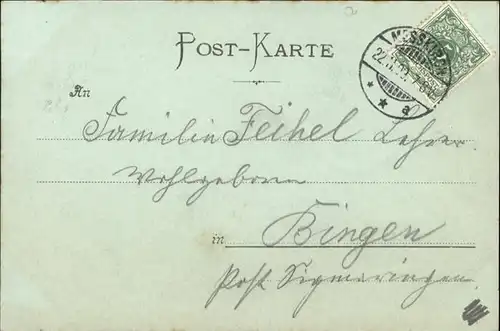 POST-KARTE
MESSKIRCH
An
Familie Feihel Lehrer
Wohlgeboren
in Bingen
Post Sigmaringen